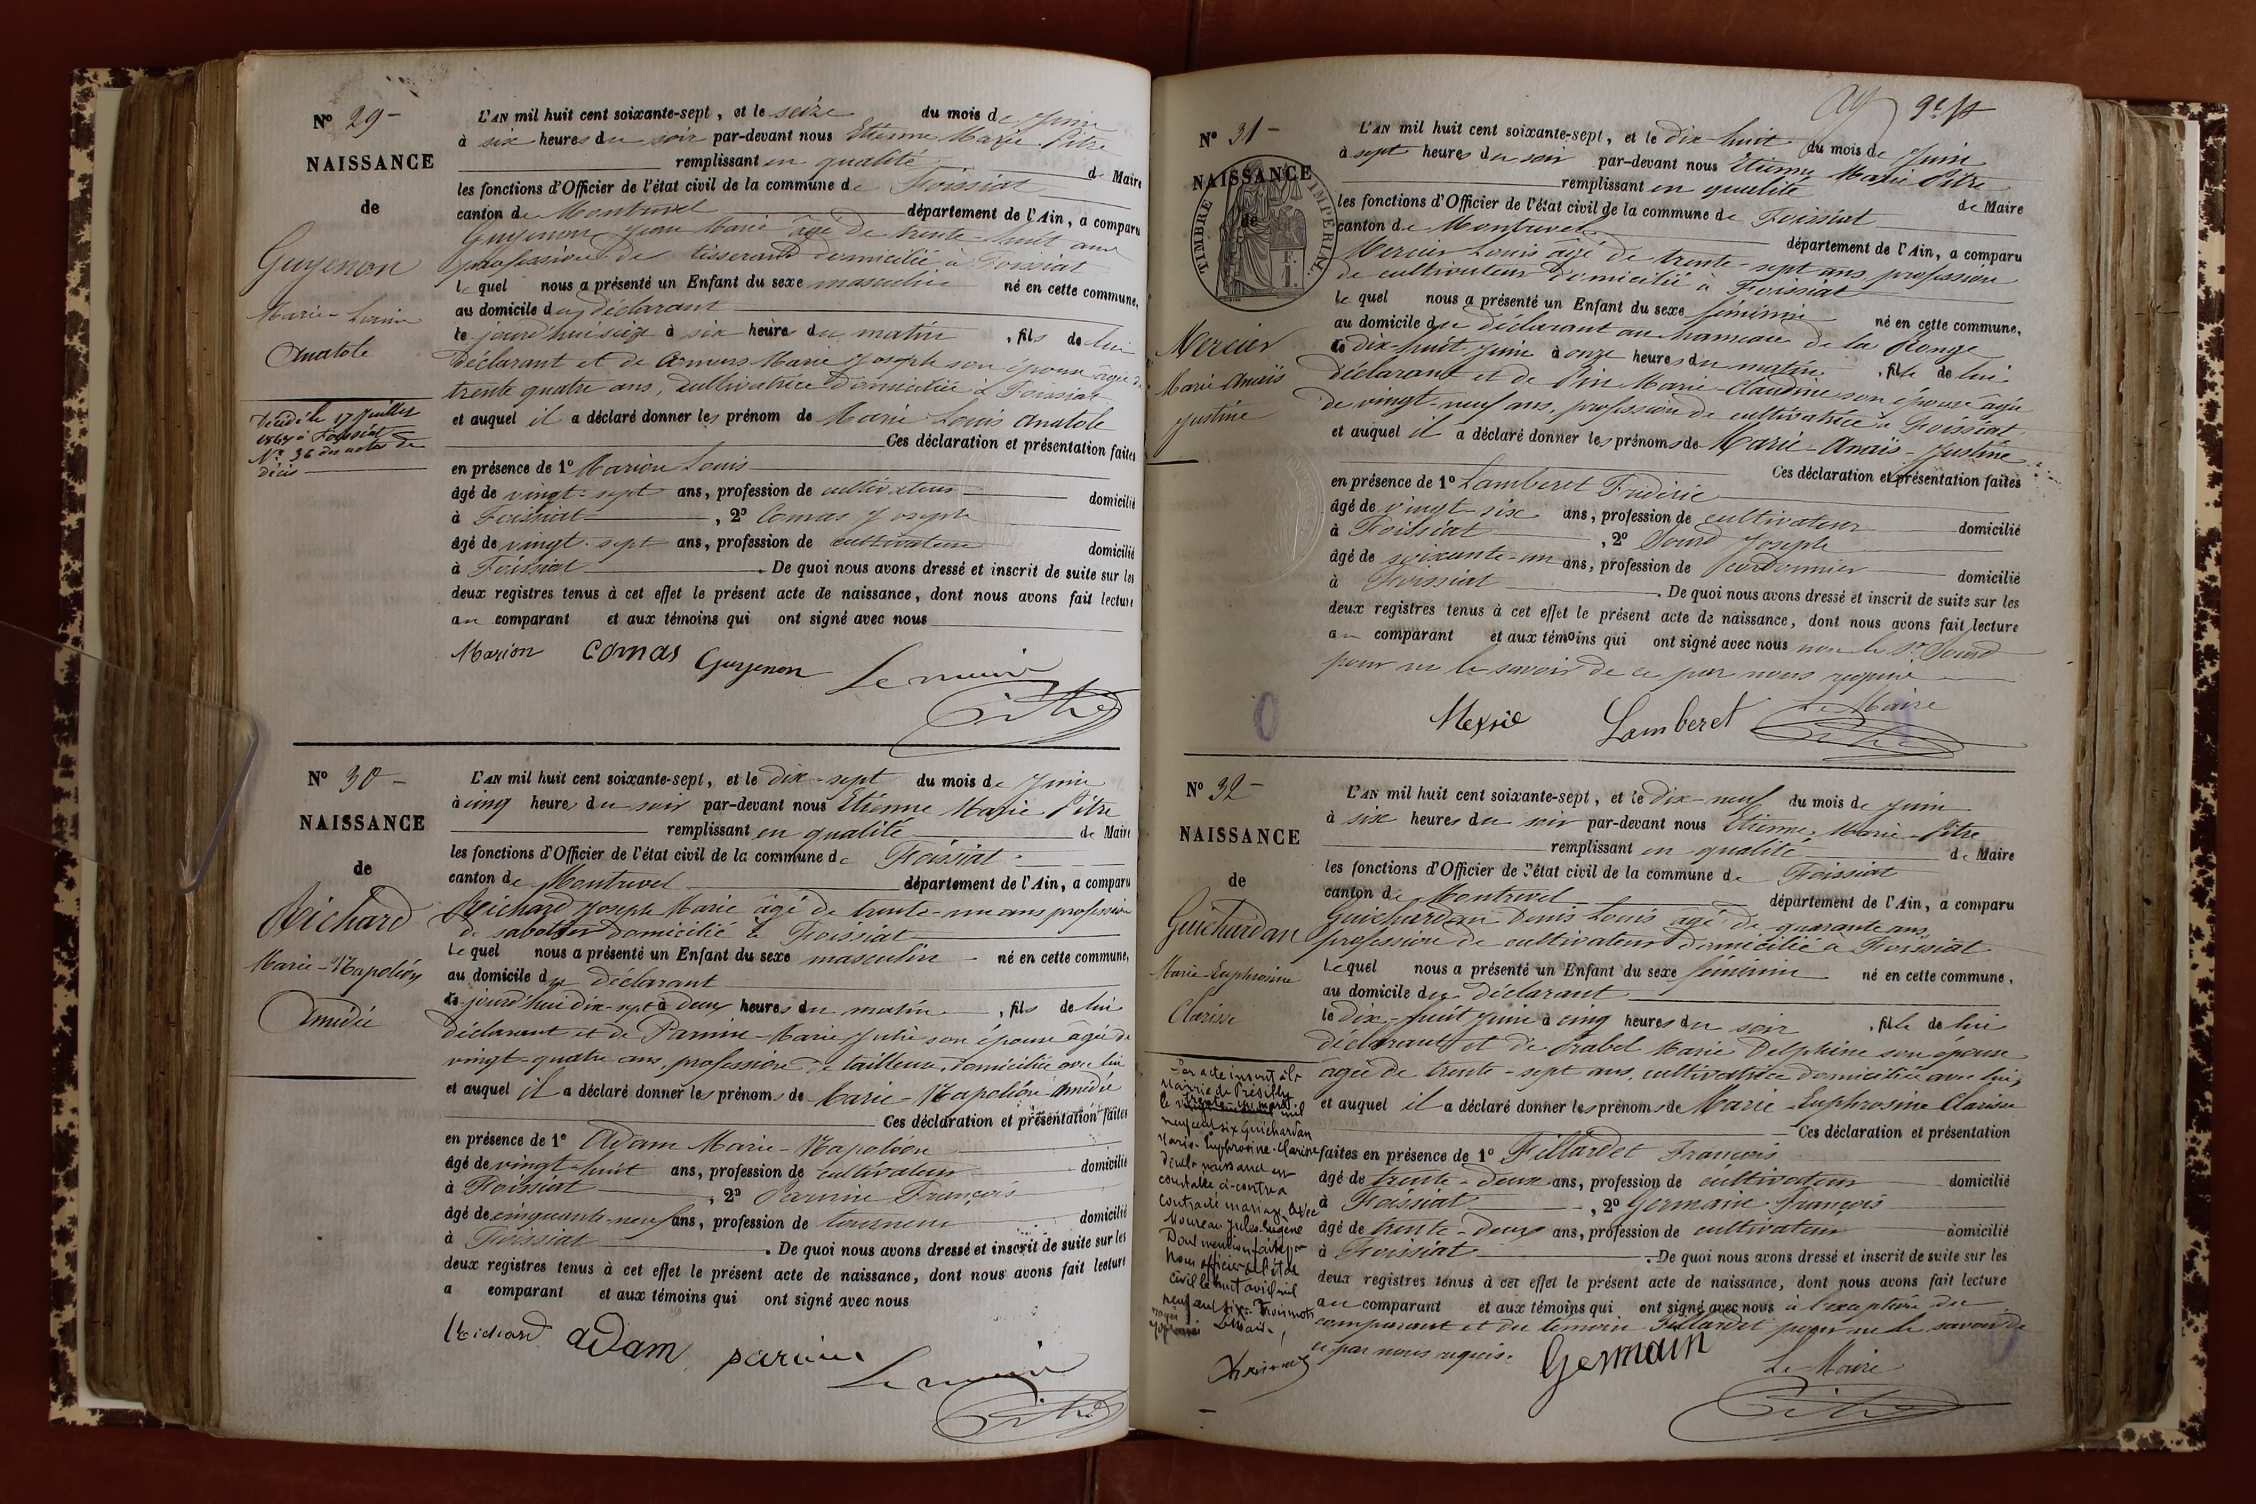 N° 29 -
NAISSANCE
de
Guyenon
Marie-Louis
Anatole
Décédé le 17 Juillet
1867 à Foissiat
N° 36 du actes de
décès
L'AN mil huit cent soixante-sept, et le seize du mois de Juin
à six heures du soir par-devant nous Etienne Marie Pitre
remplissant en qualité de Maire
les fonctions d'Officier de l'état civil de la commune de Foissiat
canton de Montrevel département de l'Ain, a comparu
Guyenon Jean Marie âgé de trente-huit ans
profession de tisserand domicilié à Foissiat
lequel nous a présenté un Enfant du sexe masculin né en cette commune,
au domicile du déclarant
le jourd'hui seize à six heures du matin, fils de lui
déclarant et de Comas Marie Joseph son épouse âgée de
trente quatre ans, cultivatrice domiciliée à Foissiat
et auquel il a déclaré donner les prénom de Marie Louis Anatole
Ces déclaration et présentation faites
en présence de 1° Marion Louis
âgé de vingt-sept ans, profession de cultivateur domicilié
à Foissiat, 2° Comas Joseph
âgé de vingt-sept ans, profession de cultivateur domicilié
à Foissiat. De quoi nous avons dressé et inscrit de suite sur les
deux registres tenus à cet effet le présent acte de naissance, dont nous avons fait lecture
au comparant et aux témoins qui ont signé avec nous
Marion Comas Guyenon Le maire
Pitre
N° 30 -
NAISSANCE
de
Richard
Marie-Napoléon
Amédée
L'AN mil huit cent soixante-sept, et le dix-sept du mois de Juin
à cinq heures du soir par-devant nous Etienne Marie Pitre
remplissant en qualité de Maire
les fonctions d'Officier de l'état civil de la commune de Foissiat
canton de Montrevel département de l'Ain, a comparu
Richard Joseph Marie âgé de trente-un ans profession
de sabotier domicilié à Foissiat
Lequel nous a présenté un Enfant du sexe masculin né en cette commune,
au domicile du déclarant
le jourd'hui dix-sept à deux heures du matin, fils de lui
déclarant et de Parnin Marie Julie son épouse âgée de
vingt-quatre ans, profession de tailleuse, domiciliée avec lui
et auquel il a déclaré donner les prénoms de Marie-Napoléon Amédée
Ces déclaration et présentation faites
en présence de 1° Adam Marie-Napoléon
âgé de vingt-huit ans, profession de cultivateur domicilié
à Foissiat, 2° Parnin François
âgé de cinquante-neuf ans, profession de tourneur domicilié
à Foissiat. De quoi nous avons dressé et inscrit de suite sur les
deux registres tenus à cet effet le présent acte de naissance, dont nous avons fait lecture
a comparant et aux témoins qui ont signé avec nous
Richard Adam parnin
Le maire
Pitre
N° 31 -
NAISSANCE
de
TIMBRE IMPÉRIAL
Mercier
Marie Anaïs
Justine
L'AN mil huit cent soixante-sept, et le dix-huit du mois de Juin
à sept heures du soir par-devant nous Etienne Marie Pitre
remplissant en qualité de Maire
les fonctions d'Officier de l'état civil de la commune de Foissiat
canton de Montrevel département de l'Ain, a comparu
Mercier Louis âgé de trente-sept ans profession
de cultivateur domicilié à Foissiat
Le quel nous a présenté un Enfant du sexe féminin né en cette commune,
au domicile du déclarant au hameau de la
le dix-huit Juin à onze heures du matin, fille de lui
déclarant et de Pin Marie-Claudine son épouse âgée
de vingt-neuf ans, profession de cultivatrice à Foissiat
et auquel il a déclaré donner les prénoms de Marie-Anaïs-Justine
Ces déclaration et présentation faites
en présence de 1° Lamberet Frédéric
âgé de vingt-six ans, profession de cultivateur domicilié
à Foissiat, 2° Sourd Joseph
âgé de soixante-un ans, profession de cordonnier domicilié
à Foissiat. De quoi nous avons dressé et inscrit de suite sur les
deux registres tenus à cet effet le présent acte de naissance, dont nous avons fait lecture
au comparant et aux témoins qui ont signé avec nous non le Sr Sourd
pour ne le savoir de ce par nous requis
Le Maire
Lamberet Pitre
N° 32 -
NAISSANCE
de
Guichardan
Marie-Euphrosine
Clarisse
Par acte inscrit à la
Mairie de Présilly
mil
neuf cent six Guichardan
Marie-Euphrosine-Clarisse
dont la naissance est
constatée ci-contre a
contracté mariage avec
Moureau Jules Eugène
Dont mention faite par
Nous officier de l'état
civil le huit avril mil
neuf cent six. Trois mots
Le Maire,
L'AN mil huit cent soixante-sept, et le dix-neuf du mois de Juin
à six heures du soir par-devant nous Etienne Marie Pitre
remplissant en qualité de Maire
les fonctions d'Officier de l'état civil de la commune de Foissiat
canton de Montrevel département de l'Ain, a comparu
Guichardan Denis Louis âgé de quarante ans
profession de cultivateur domicilié à Foissiat
Lequel nous a présenté un Enfant du sexe féminin né en cette commune,
au domicile du déclarant
le dix-huit Juin à cinq heures du soir, fille de lui
déclarant et de Érabel Marie Delphine son épouse
âgée de trente-sept ans, cultivatrice domiciliée avec lui
et auquel il a déclaré donner les prénoms de Marie Euphrosine Clarisse
Ces déclaration et présentation
faites en présence de 1° Fillardet François
âgé de trente-deux ans, profession de cultivateur domicilié
à Foissiat, 2° Germain François
âgé de trente-deux ans, profession de cultivateur domicilié
à Foissiat. De quoi nous avons dressé et inscrit de suite sur les
deux registres tenus à cet effet le présent acte de naissance, dont nous avons fait lecture
au comparant et aux témoins qui ont signé avec nous à l'exception du
comparant et du témoin Fillardet pour ne le savoir de
ce par nous requis.
Germain Le Maire
Pitre